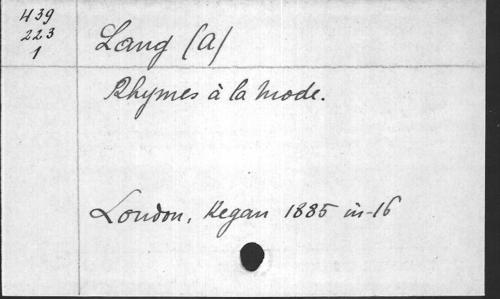 439
223
1
Lang (A)
Rhymes à la Mode.
London, Kegan 1885 in-16